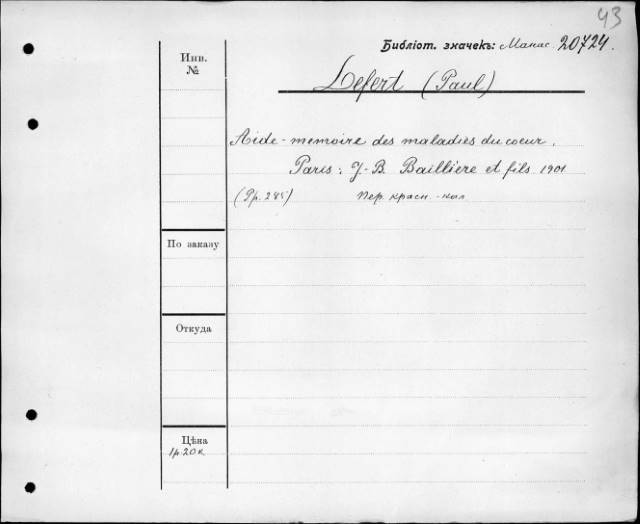 43
Библіот. значекъ: Манас. 20724.
Инв.
№
Lefert (Paul)
Aide-memoire des maladies du coeur.
Paris: J-B. Bailliere et fils 1901
(Pp. 285) Пер. красн.-кол
По заказу
Откуда
Цѣна
1р. 20к.